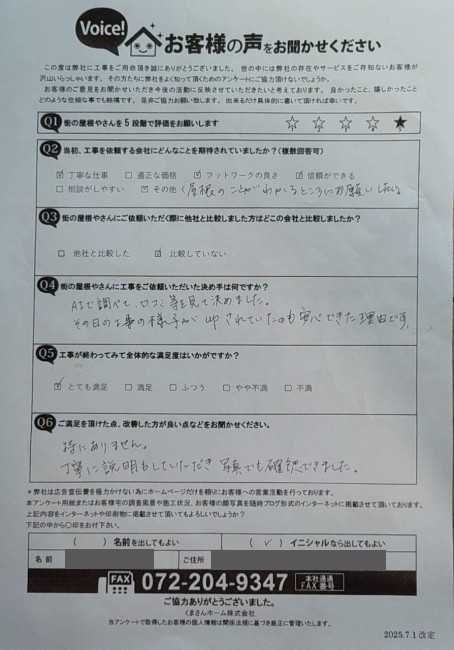 Voice! お客様の声をお聞かせください
この度は弊社に工事をご用命頂き誠にありがとうございました。世の中には弊社の存在やサービスをご存知ないお客様が
沢山いらっしゃいます。その方たちに弊社をよく知って頂くためのアンケートにご協力頂けないでしょうか。
お客様のご意見をお聞かせいただき今後の活動に反映させていただきたいと考えております。良かったこと、嬉しかったこと
どのような些細な事でも結構です。是非ご協力お願い致します。出来るだけ具体的に書いて頂ければ幸いです。
Q1 街の屋根やさんを5段階で評価をお願いします ☆ ☆ ☆ ☆ ★
Q2 当初、工事を依頼する会社にどんなことを期待されていましたか?(複数回答可)
☑ 丁寧な仕事 □ 適正な価格 ☑ フットワークの良さ ☑ 信頼ができる
□ 相談がしやすい ☑ その他(屋根のことがわかるところにお願いしたい)
Q3 街の屋根やさんにご依頼いただく際に他社と比較しました方はどこの会社と比較しましたか?
□ 他社と比較した ☑ 比較していない
Q4 街の屋根やさんに工事をご依頼いただいた決め手は何ですか?
AIで調べて、口コミ等を見て決めました。
その日の工事の様子がUPされていたのも安心できた理由です。
Q5 工事が終わってみて全体的な満足度はいかがですか?
☑ とても満足 □ 満足 □ ふつう □ やや不満 □ 不満
Q6 ご満足を頂けた点、改善した方が良い点などをお聞かせください。
特にありません。
丁寧に説明もしていただき 写真でも確認できました。
*弊社は広告宣伝費を極力かけない為にホームページだけを頼りにお客様への営業活動を行っております。
本アンケート用紙またはお客様宅の調査風景や施工状況、お客様の顔写真を随時ブログ形式のインターネットに掲載させて頂いております。
上記内容をインターネットや印刷物に掲載させて頂いてもよろしいでしょうか?
下記の中から〇印をお付下さい。
( ) 名前を出してもよい ( ✓ ) イニシャルなら出してもよい
名 前 ご住所
FAX 072-204-9347 本社通通 FAX番号
ご協力ありがとうございました。
くまさんホーム株式会社
当アンケートで取得したお客様の個人情報は関係法規に基づき厳正に管理いたします。
2025.7.1 改定